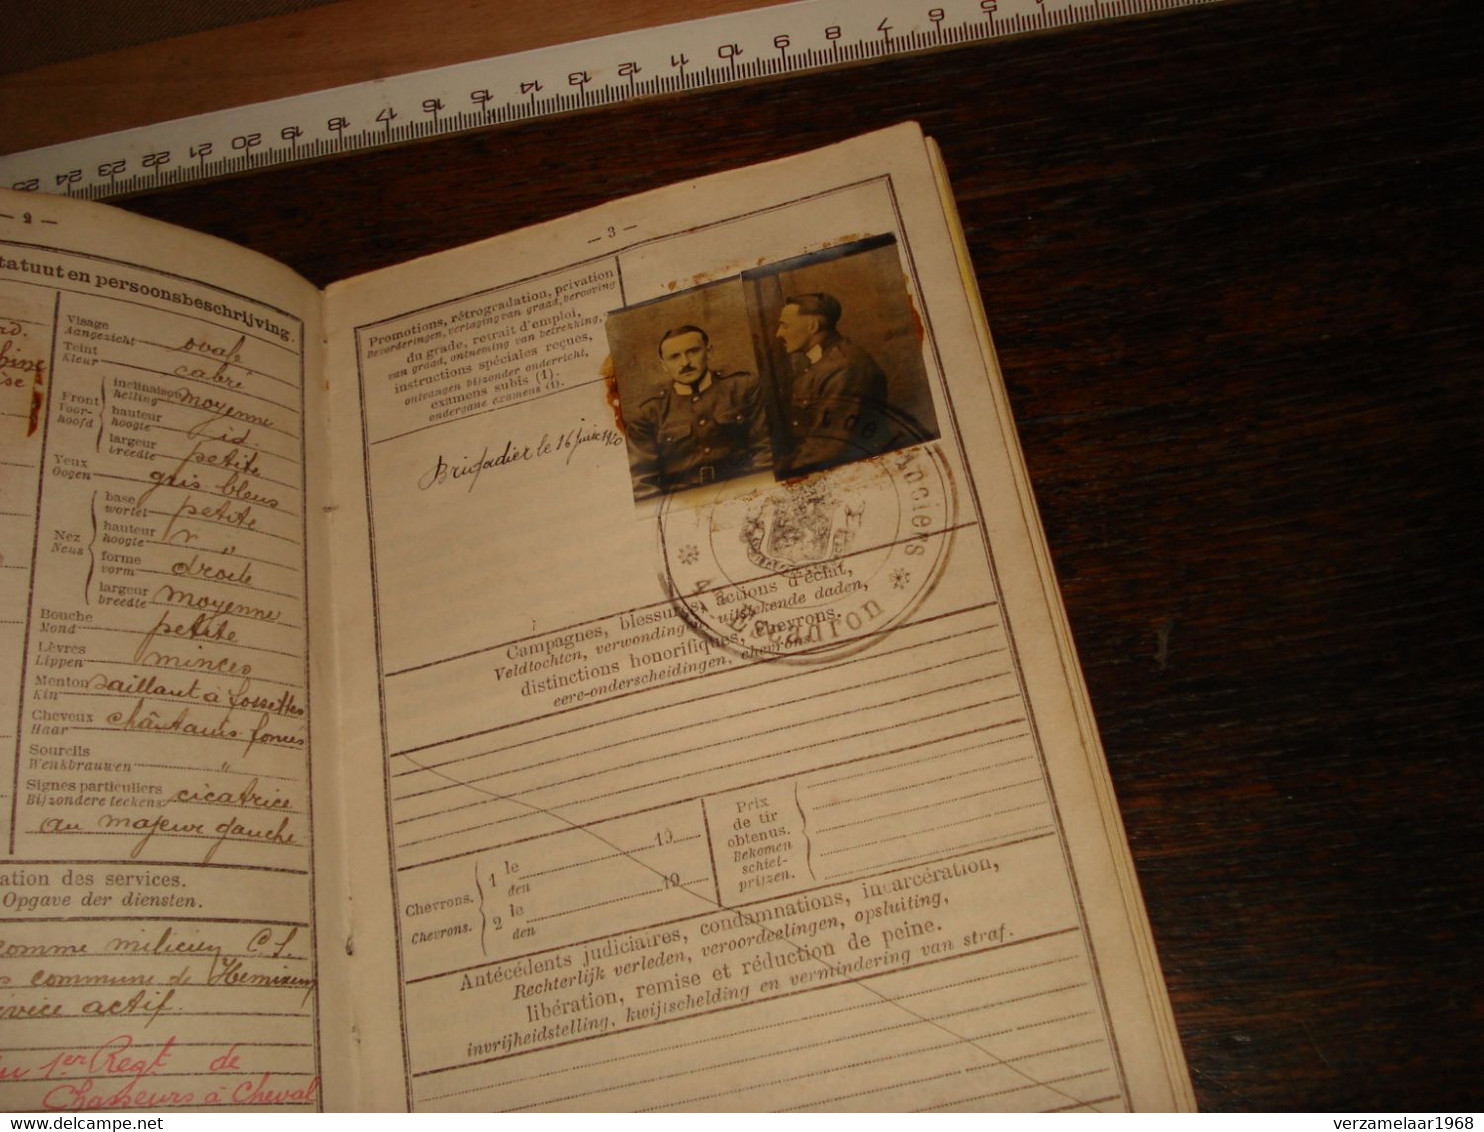 25 24 23 22 21 20 19 18 17 16 15 14 13 12 11 10 9 8 7 6 5 4
— 2 —
tatuut en persoonsbeschrijving.
Visage
Aangezicht ovale
Teint
Kleur
Front
Voorhoofd
inclinaison
helling moyenne
hauteur
hoogte id.
largeur
breedte petite
Yeux
Oogen gris bleus
Nez
Neus
base
wortel petite
hauteur
hoogte "
forme
vorm droite
largeur
breedte moyenne
Bouche
Mond petite
Lèvres
Lippen minces
Menton
Kin saillant à fossettes
Cheveux
Haar châtains foncés
Sourcils
Wenkbrauwen "
Signes particuliers
Bijzondere teekens cicatrice
au majeur gauche
ation des services.
Opgave der diensten.
comme milicien C. S.
commune de Hemixem
service actif.
1er Regt de
Chasseurs à Cheval
— 3 —
Promotions, rétrogradation, privation
Bevorderingen, verlaging van graad, berooving
du grade, retrait d'emploi,
van graad, ontneming van betrekking,
instructions spéciales reçues,
ontvangen bijzonder onderricht,
examens subis (1).
ondergane examens (1).
Brigadier le 16 juin 1920
de Lanciers
* 4 Escadron *
Campagnes, blessures, actions d'éclat,
Veldtochten, verwondingen, uitstekende daden,
distinctions honorifiques, chevrons.
eere-onderscheidingen, chevrons.
Chevrons.
Chevrons.
1 le
den 19
2 le
den 19
Prix
de tir
obtenus.
Bekomen
schiet-
prijzen.
Antécédents judiciaires, condamnations, incarcération,
Rechterlijk verleden, veroordeelingen, opsluiting,
libération, remise et réduction de peine.
invrijheidstelling, kwijtschelding en vermindering van straf.
verzamelaar1968